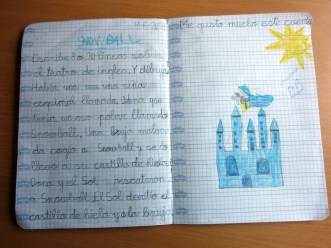 SNOWBALL
Escribe 8 o 10 líneas sobre
el teatro de inglés. Y dibuja
Había una vez una niña
esquimal llamada Dona que
tenía un oso polar llamado
Snowball. Una bruja malva-
da cogió a Snowball y se lo
llevó a su castillo de hielo.
Dona y el Sol rescataron
a Snowball. El Sol derritió el
castillo de hielo y a la bruja.
Me gustó mucho este cuento